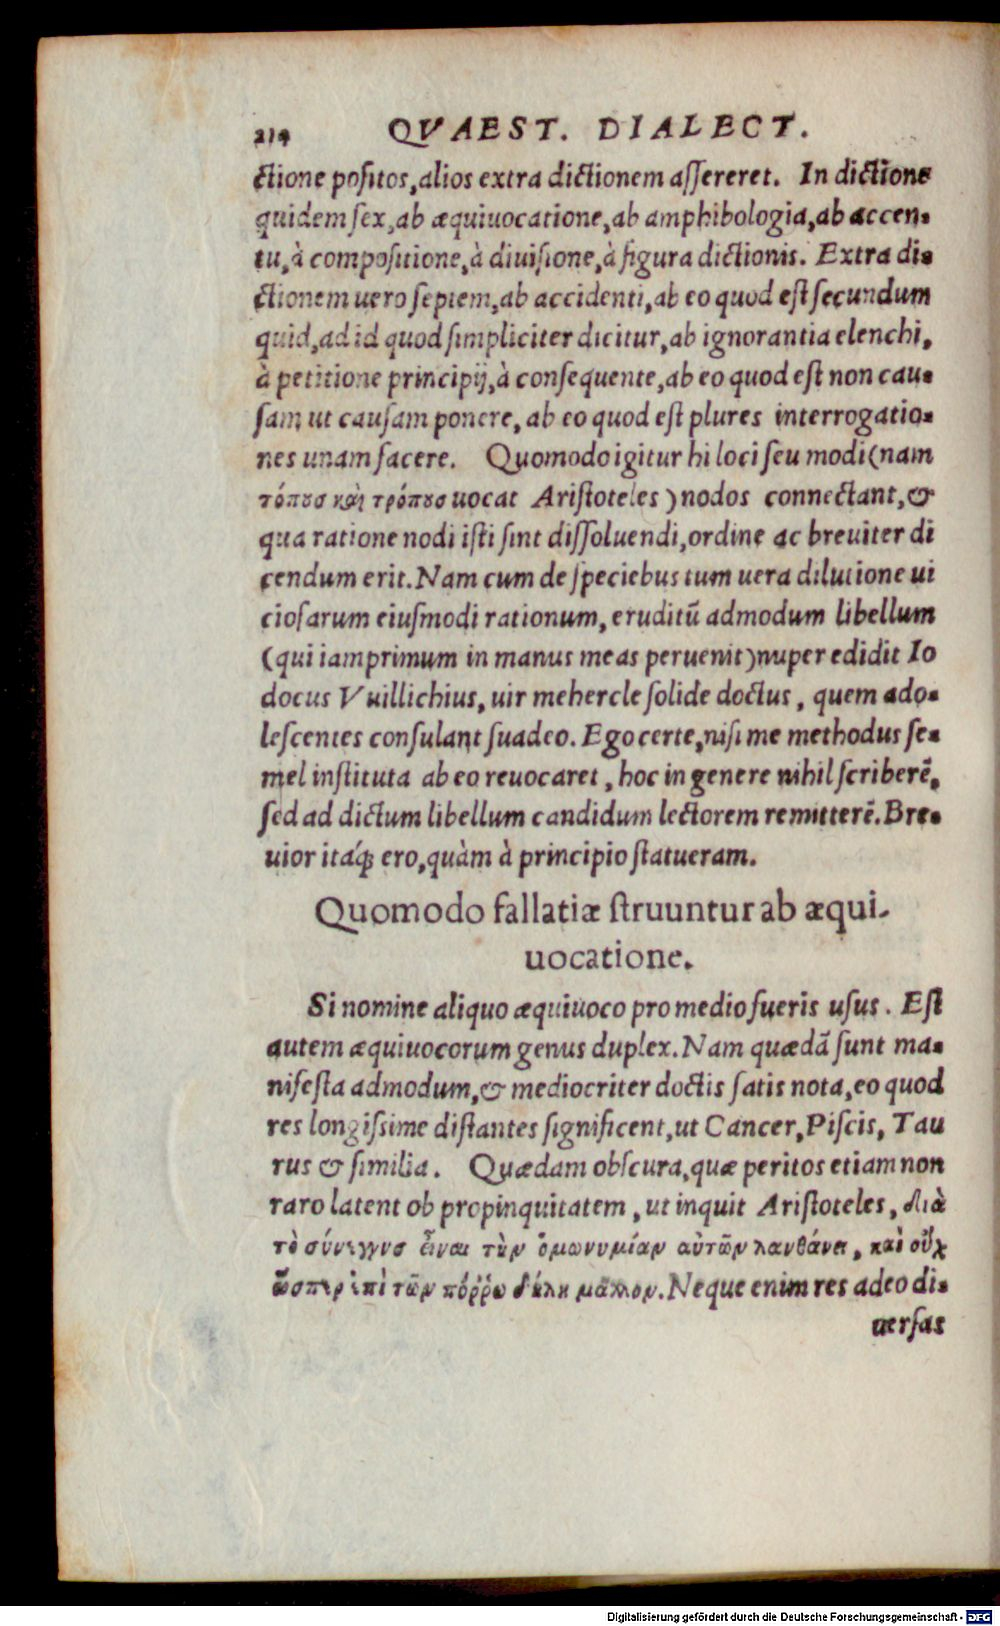 214 QVAEST. DIALECT.
ctione positos, alios extra dictionem assereret. In dictione
quidem sex, ab æquiuocatione, ab amphibologia, ab accen-
tu, à compositione, à diuisione, à figura dictionis. Extra di-
ctionem uero septem, ab accidenti, ab eo quod est secundum
quid, ad id quod simpliciter dicitur, ab ignorantia elenchi,
à petitione principij, à consequente, ab eo quod est non cau-
sam ut causam ponere, ab eo quod est plures interrogatio-
nes unam facere. Quomodo igitur hi loci seu modi (nam
τόπουσ καὶ τρόπουσ uocat Aristoteles) nodos connectant, &
qua ratione nodi isti sint dissoluendi, ordine ac breuiter di
cendum erit. Nam cum de speciebus tum uera dilutione ui
ciosarum eiusmodi rationum, eruditū admodum libellum
(qui iamprimum in manus meas peruenit) nuper edidit Io
docus Vuillichius, uir mehercle solide doctus, quem ado-
lescentes consulant suadeo. Ego certe, nisi me methodus se-
mel instituta ab eo reuocaret, hoc in genere nihil scriberē,
sed ad dictum libellum candidum lectorem remitterē. Bre-
uior itáq; ero, quàm à principio statueram.
Quomodo fallatiæ struuntur ab æqui-
uocatione.
Si nomine aliquo æquiuoco pro medio fueris usus. Est
autem æquiuocorum genus duplex. Nam quædā sunt ma-
nifesta admodum, & mediocriter doctis satis nota, eo quod
res longissime distantes significent, ut Cancer, Piscis, Tau
rus & similia. Quædam obscura, quæ peritos etiam non
raro latent ob propinquitatem, ut inquit Aristoteles, διὰ
τὸ σύνεγγυσ εἶναι τὴν ὁμωνυμίαν αὐτῶν λανθάνει, καὶ οὐχ
ὥσπερ ἐπὶ τῶν πόῤῥω δήλη μᾶλλον. Neque enim res adeo di-
uersas
Digitalisierung gefördert durch die Deutsche Forschungsgemeinschaft - DFG